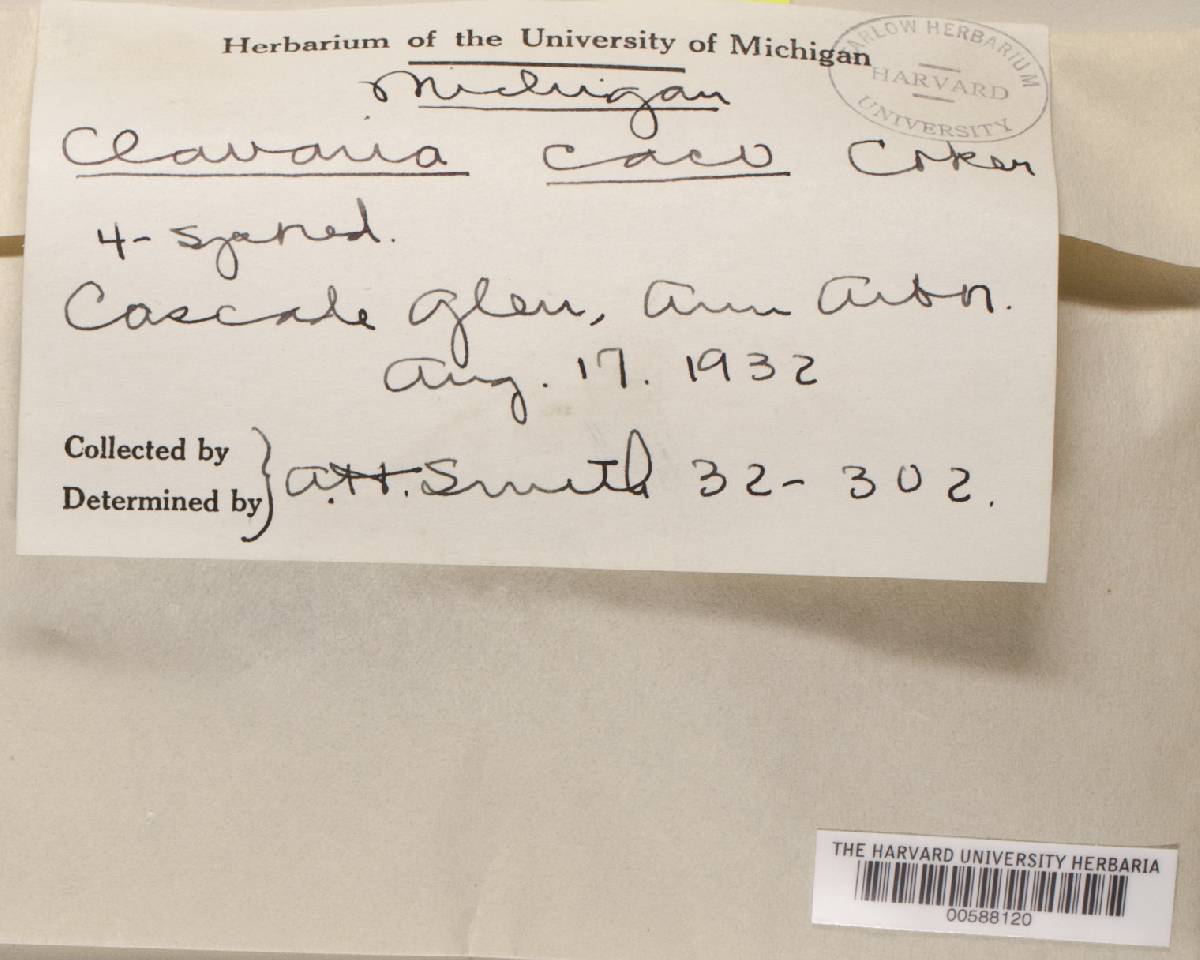 Herbarium of the University of Michigan
FARLOW HERBARIUM
HARVARD
UNIVERSITY
Michigan
Clavaria caco Coker
4-spored.
Cascade Glen, Ann Arbor.
Aug. 17. 1932
Collected by
Determined by
A.H. Smith 32-302.
THE HARVARD UNIVERSITY HERBARIA
00588120